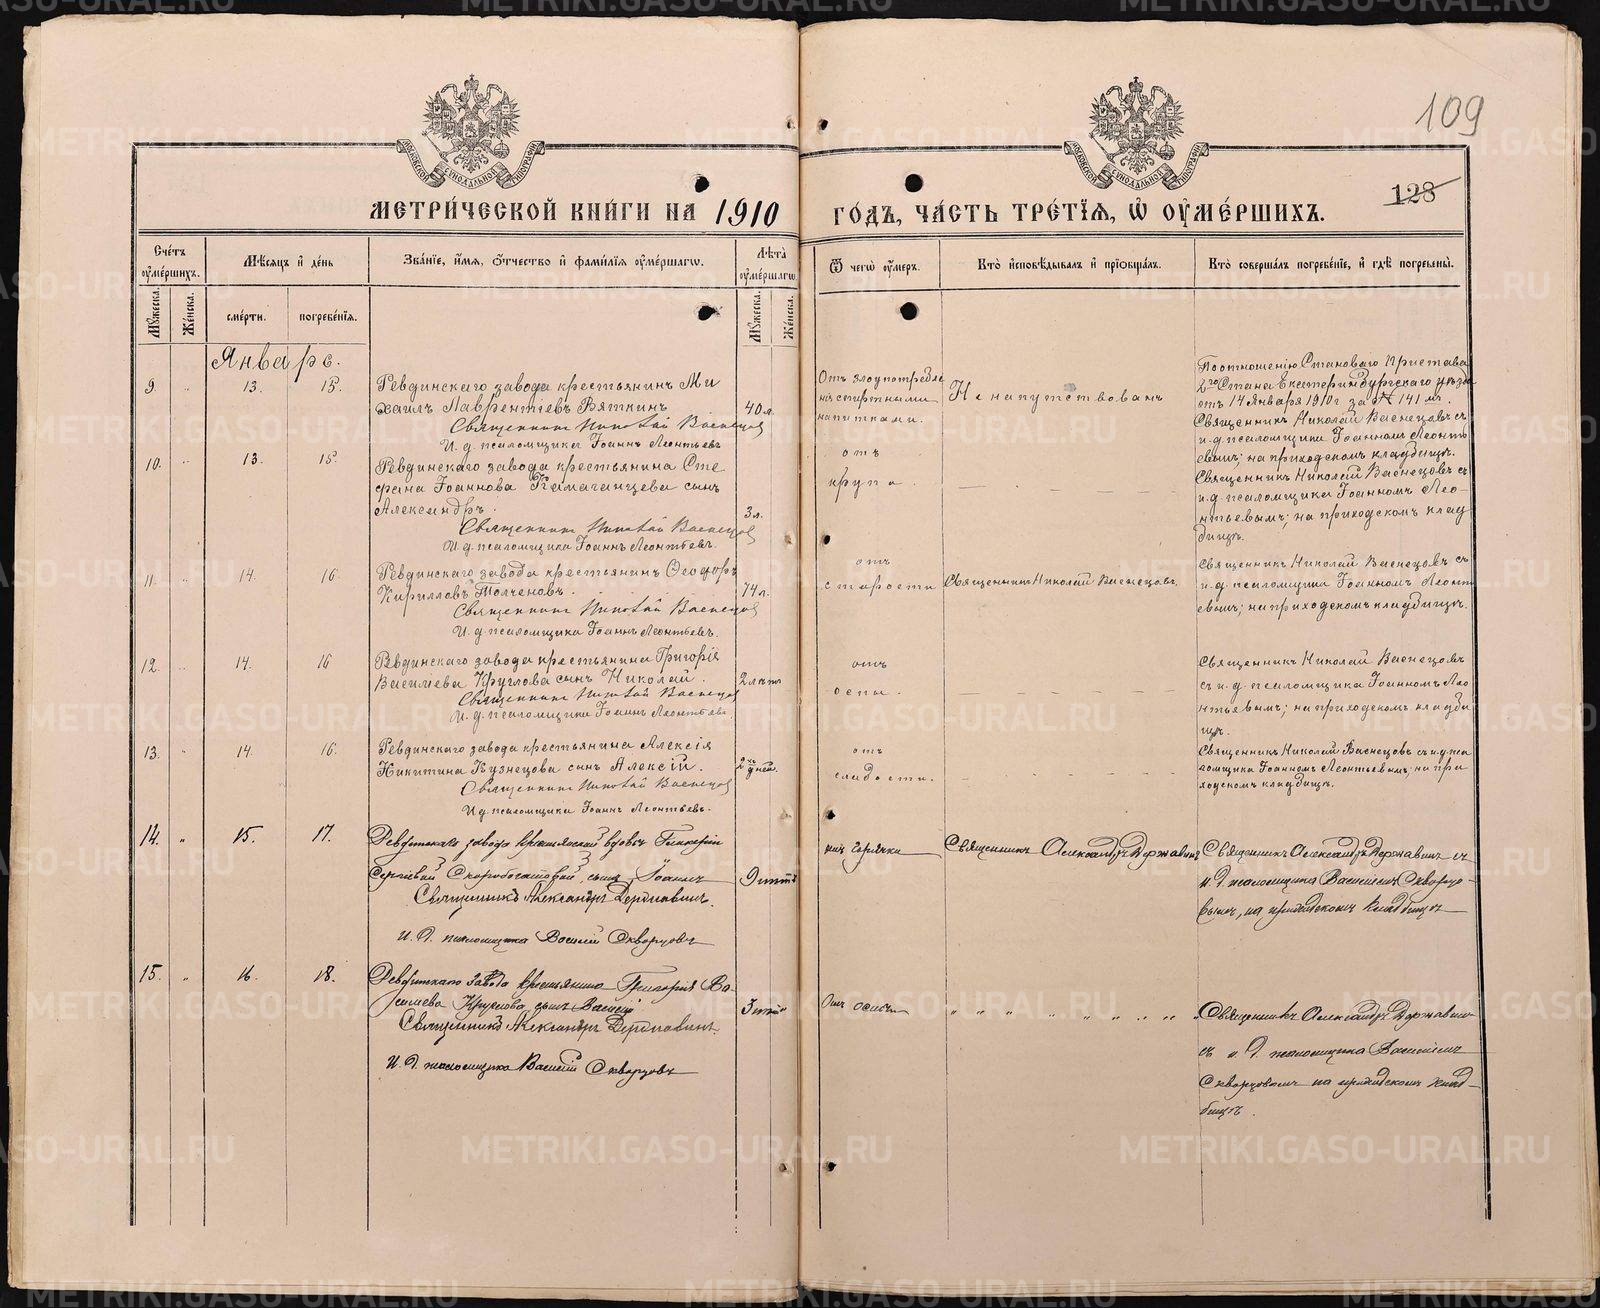 109
128
МОСКОВСКОЙ СѴНОДАЛЬНОЙ ТИПОГРАФІИ
МОСКОВСКОЙ СѴНОДАЛЬНОЙ ТИПОГРАФІИ
МЕТРИ́ЧЕСКОЙ КНИ́ГИ НА 1910 ГО́ДЪ, ЧА́СТЬ ТРЕ́ТЇѦ, Ѽ ОУ҆МЕ́РШИХЪ.
Сче́тъ оу҆ме́ршихъ.
Мѣ́сѧцъ и҆ де́нь
Зва́нїе, и҆́мѧ, ѻ҆́тчество и҆ фами́лїѧ оу҆ме́ршагѡ.
Лѣ́та оу҆ме́ршагѡ.
Ѿ чегѡ̀ оу҆́меръ.
Кто̀ и҆сповѣ́дывалъ и҆ прїѡбща́лъ.
Кто̀ соверша́лъ погребе́нїе, и҆ гдѣ̀ погребены̀.
Му́жеска.
Же́нска.
сме́рти.
погребе́нїѧ.
Му́жеска.
Же́нска.
Январь.
9. „ 13. 15.
Ревдинскаго завода крестьянинъ Ми
хаилъ Лаврентіевъ Вяткинъ
40 л.
Священникъ Николай Васнецов
И. д. псаломщика Іоаннъ Леонтьевъ
Отъ злоупотребле
нія спиртными
напитками.
Не напутствованъ
По отношенію Становаго Пристава
2го Стана Екатеринбургскаго уѣзда
отъ 14 Января 1910 г за № 141 м.
Священникъ Николай Васнецовъ с
и. д. псаломщика Іоанномъ Леонть
евымъ; на приходскомъ кладбищѣ.
10. „ 13. 15.
Ревдинскаго завода крестьянина Сте
фана Іоаннова сынъ
Александръ.
3 л.
Священникъ Николай Васнецов
И. д. псаломщика Іоаннъ Леонтьевъ.
отъ
крупа.
Священникъ Николай Васнецовъ с
и. д. псаломщика Іоанномъ Лео-
нтьевымъ; на приходскомъ клад
бищѣ.
11. „ 14. 16
Ревдинскаго завода крестьянинъ Ѳеодоръ
Кирилловъ Толченовъ.
74 л.
Священникъ Николай Васнецов
И. д. псаломщика Іоаннъ Леонтьевъ.
отъ
старости
Священникъ Николай Васнецовъ.
Священникъ Николай Васнецовъ съ
и. д. псаломщика Іоанномъ Леонт
евымъ; на приходскомъ кладбищѣ.
12. „ 14. 16
Ревдинскаго завода крестьянина Григорія
Васильева Круглова сынъ Николай.
2 лѣтъ
Священникъ Николай Васнецов
И. д. псаломщика Іоаннъ Леонтьевъ.
отъ
оспы.
Священникъ Николай Васнецовъ
съ и. д. псаломщика Іоанномъ Лео
нтьевымъ; на приходскомъ кладби
щѣ.
13. „ 14. 16.
Ревдинскаго завода крестьянина Алексія
Никитина Кузнецова сынъ Алексій.
дней.
Священникъ Николай Васнецов
И д. псаломщика Іоаннъ Леонтьевъ.
отъ
слабости.
Священникъ Николай Васнецовъ с и. д. пса
ломщика Іоанномъ Леонтьевымъ; на при
ходскомъ кладбищѣ.
14. „ 15. 17.
Ревдинскаго завода крестьянской вдовы
Сергіевой Скоробогатовой, сынъ Іоаннъ
9
Священникъ Александръ Державинъ.
И. Д. псаломщика Василій Скворцовъ
горячки
Священникъ Александръ Державинъ
Священникъ Александръ Державинъ съ
и. д. псаломщика Василіемъ Скворцо-
вымъ, на приходскомъ кладбищѣ
15. „ 16. 18.
Ревдинскаго завода крестьянина Григорія Ва
сильева Круглова сынъ Василій
3
Священникъ Александръ Державинъ.
И. Д. псаломщика Василій Скворцовъ
Отъ оспы
Священникъ Александръ Державинъ
съ и. д. псаломщика Василіемъ
Скворцовымъ на приходскомъ клад-
бищѣ.
METRIKI.GASO-URAL.RU